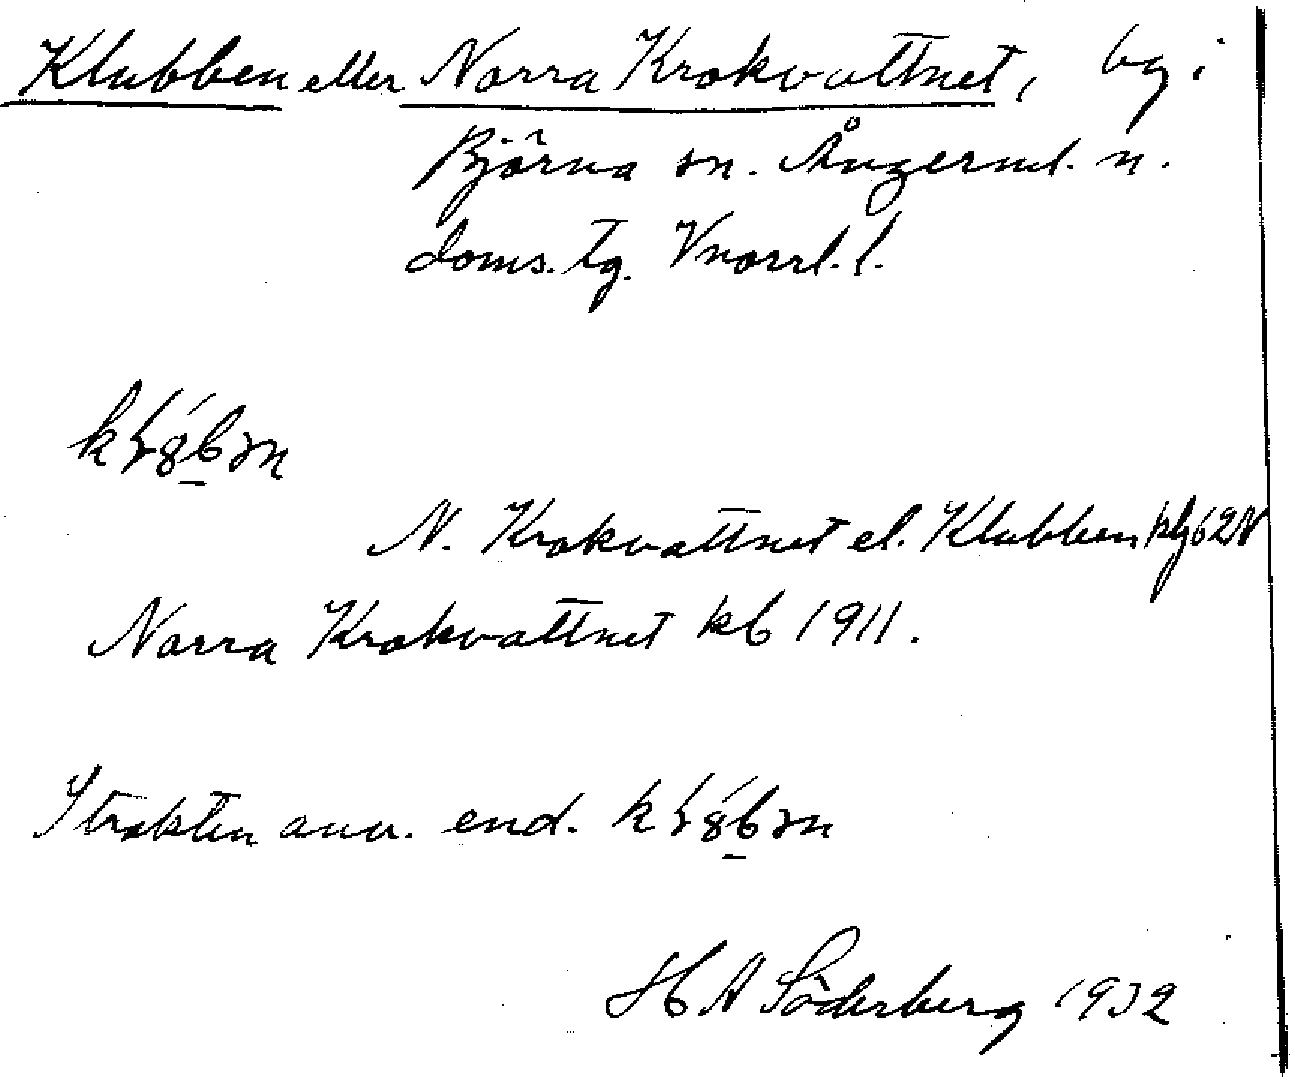 Klubben eller Norra Krokvattnet, by i
Björna sn. Ångerml. n.
doms. tg. Vnorrl. l.
N. Krokvattnet el. Klubben
Norra Krokvattnet kb 1911.
I trakten anv. end.
H A Söderberg 1932